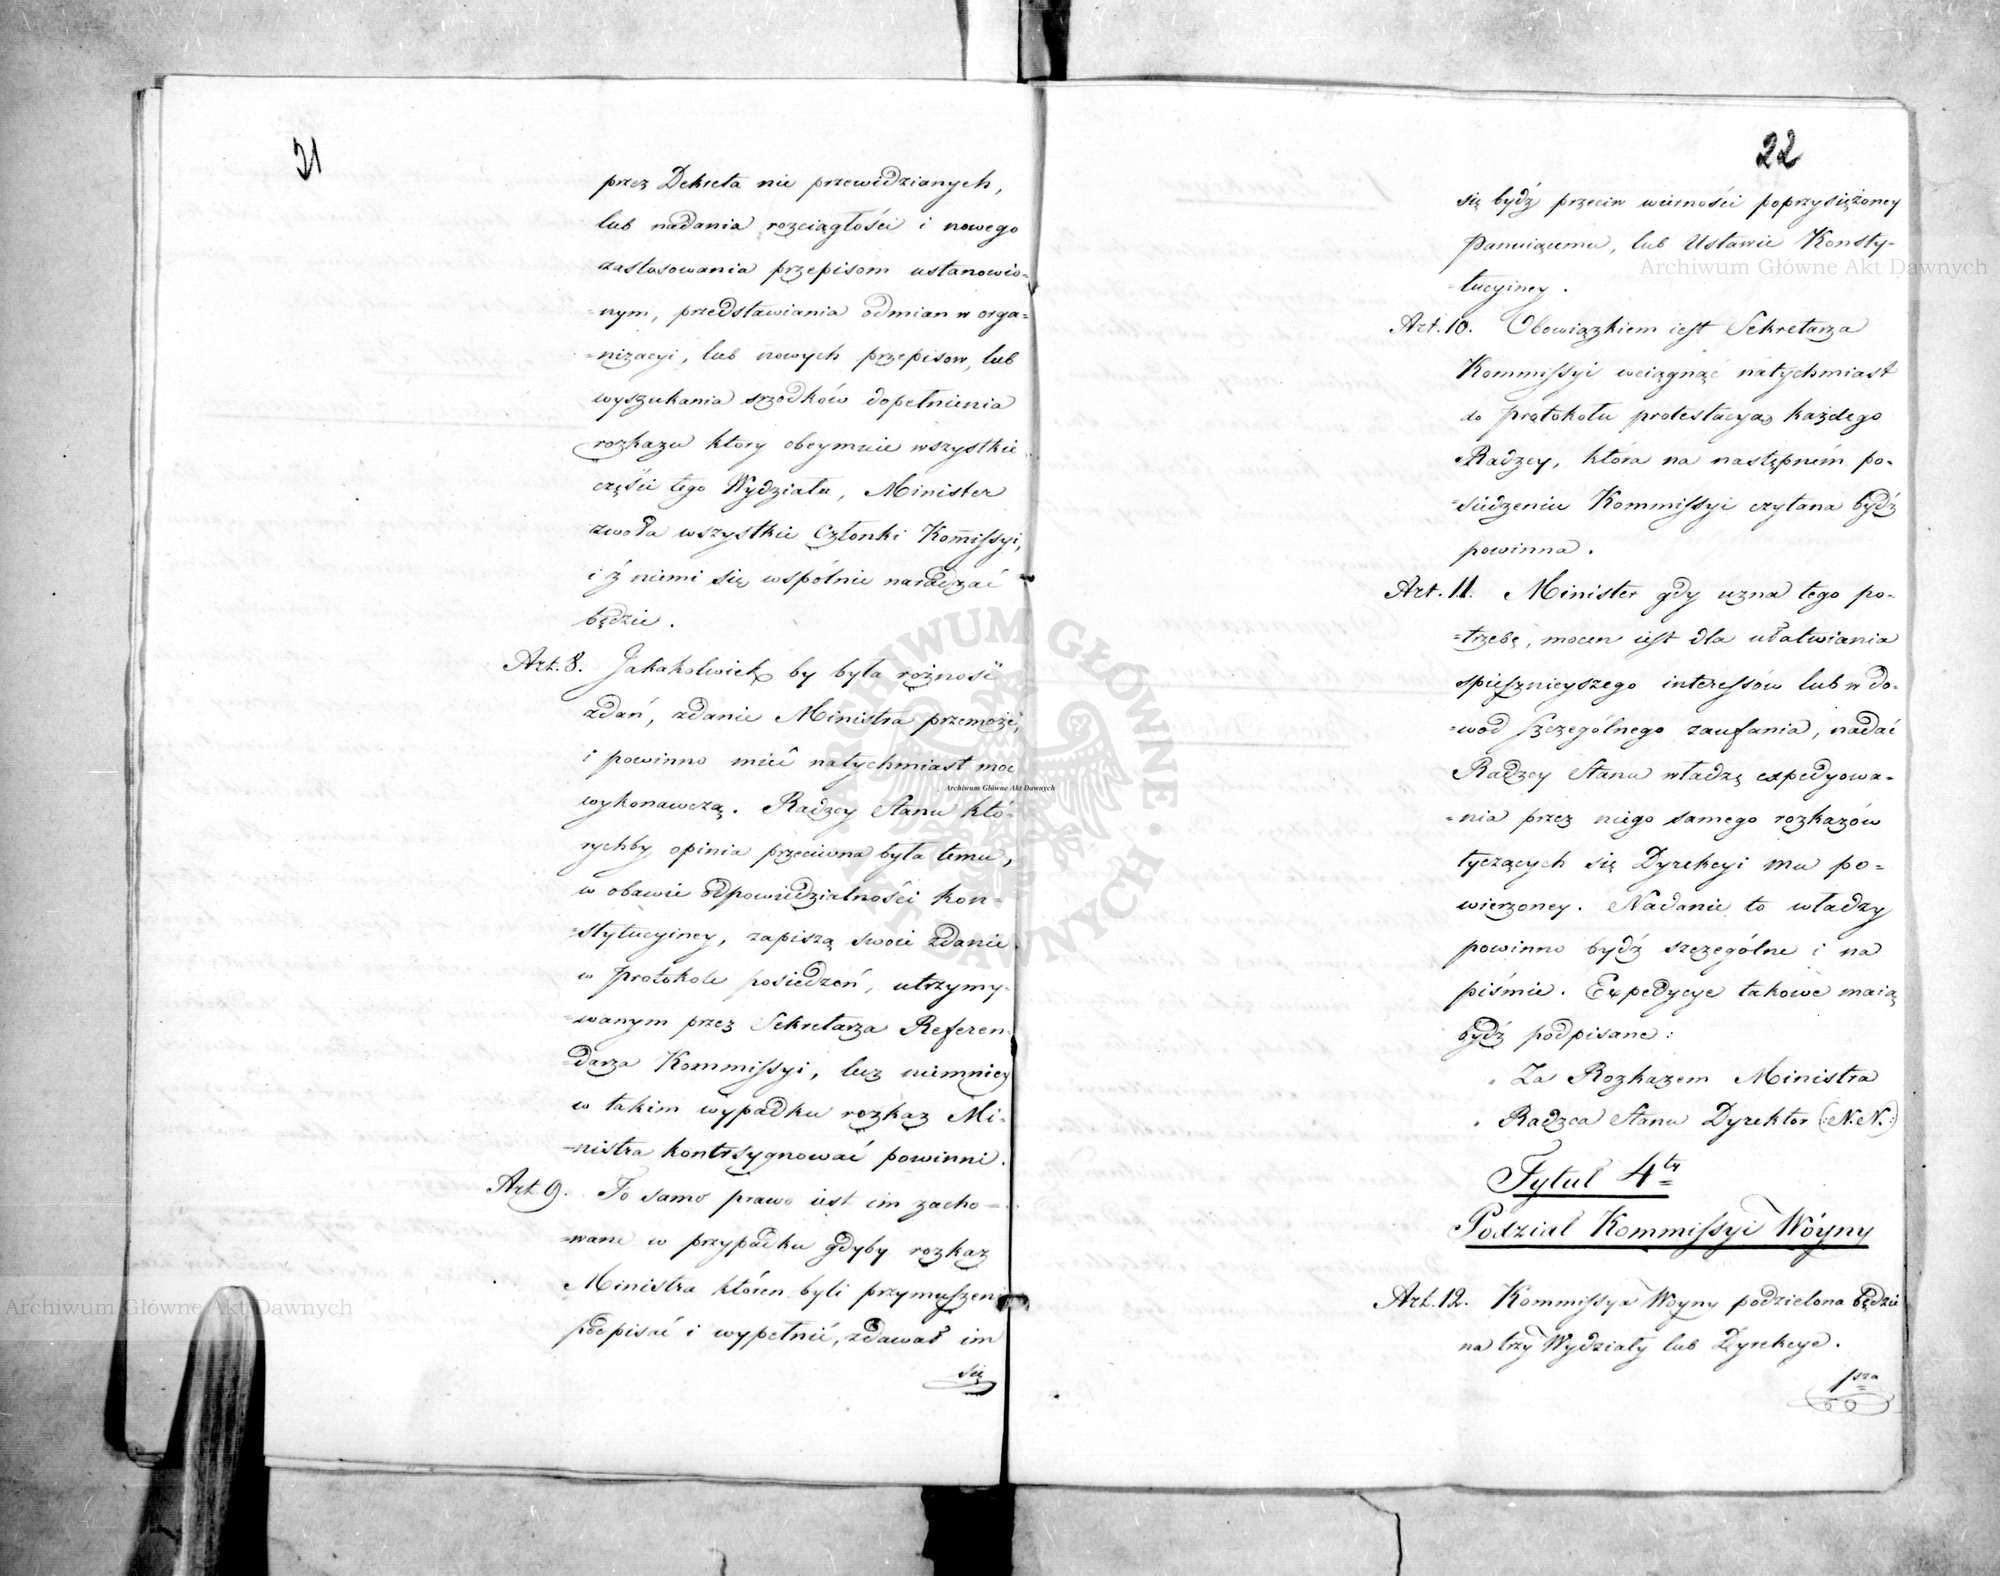 21
przez Dekreta nie przewidzianych,
lub nadania rozciągłości i nowego
zastosowania przepisom ustanowio-
=nym, przedstawiania odmian w orga=
=nizacyi, lub nowych przepisow, lub
wyszukania srzodków dopełnienia
rozkazu ktory obeymuie wszystkie
części tego Wydziału, Minister
zwoła wszystkie Członki Kom̄issyi,
i z niemi się wspólnie naradzać
będzie.
Art. 8. Jakakolwiek by była rożność
zdań, zdanie Ministra przemoże,
i powinno mieć natychmiast moc
wykonawczą. Radzcy Stanu któ-
rychby opinia przeciwna była temu,
w obawie odpowiedzialności kon-
=stytucyiney, zapiszą swoie zdanie
w protokole posiedzeń, utrzymy-
=wanym przez Sekretarza Referen-
=darza Kommissyi, lecz niemniey
w takim wypadku rozkaz Mi-
=nistra kontrsygnować powinni.
Art. 9. To samo prawo iest im zacho-
=wane w przypadku gdyby rozkaz
Ministra któren byli przymuszeni
podpisać i wypełnić, zdawał im
się
22
się bydź przeciw wierności poprzysiężoney
Panuiącemu, lub Ustawie Konsty-
=tucyiney.
Art. 10. Obowiązkiem iest Sekretarza
Kommissyi wciągnąć natychmiast
do protokołu protestacya każdego
Radzcy, która na następném po-
=siedzeniu Kommissyi czytana bydź
powinna.
Art. 11. Minister gdy uzna tego po-
=trzebę, mocen iest dla ułatwiania
spieszniejszego interessów lub w do-
=wod szczególnego zaufania, nadać
Radzcy Stanu władzę expedyowa-
=nia przez niego samego rozkazów
tyczących się Dyrekcyi mu po-
wierzoney. Nadanie to władzy
powinno bydź szczególne i na
piśmie. Expedycye takowe maią
bydź podpisane:
Za Rozkazem Ministra
Radzca Stanu Dyrektor (:N.N.:)
Tytuł 4ty
Podział Kommissyi Wóyny
Art. 12. Kommissya Woyny podzielona będzie
na trzy Wydziały lub Dyrekcye.
1sza
Archiwum Główne Akt Dawnych
Archiwum Główne Akt Dawnych
Archiwum Główne Akt Dawnych
ARCHIWUM GŁÓWNE AKT DAWNYCH